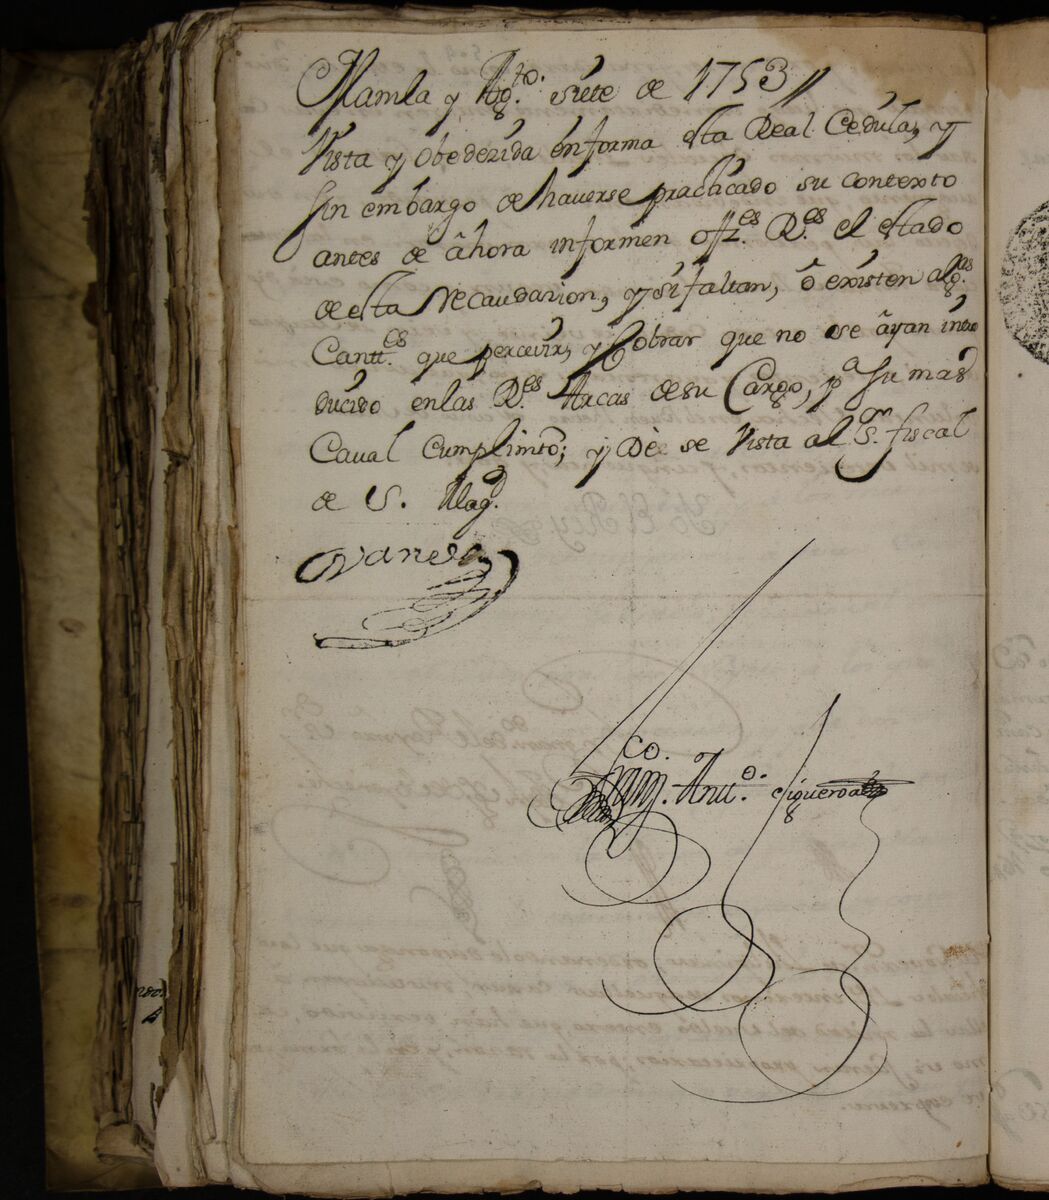 Manila y Ag.to siete de 1753//
Vista y obedezida en forma esta Real Cedula, y
sin embargo de haverse practicado su contexto
antes de âhora informen ofiz.es R.es el estado
de esta Recaudazion, y si faltan, ô existen alg.as
Cantt.es que percevir, y Cobrar que no se âyan intro
ducido en las R.es Arcas de su Cargo, p.a su mas
Caval cumplimto; y Dèse Vista al S.or fiscal
de S. Mag.d
Ovando
Fran.co Ant.o Figueroa